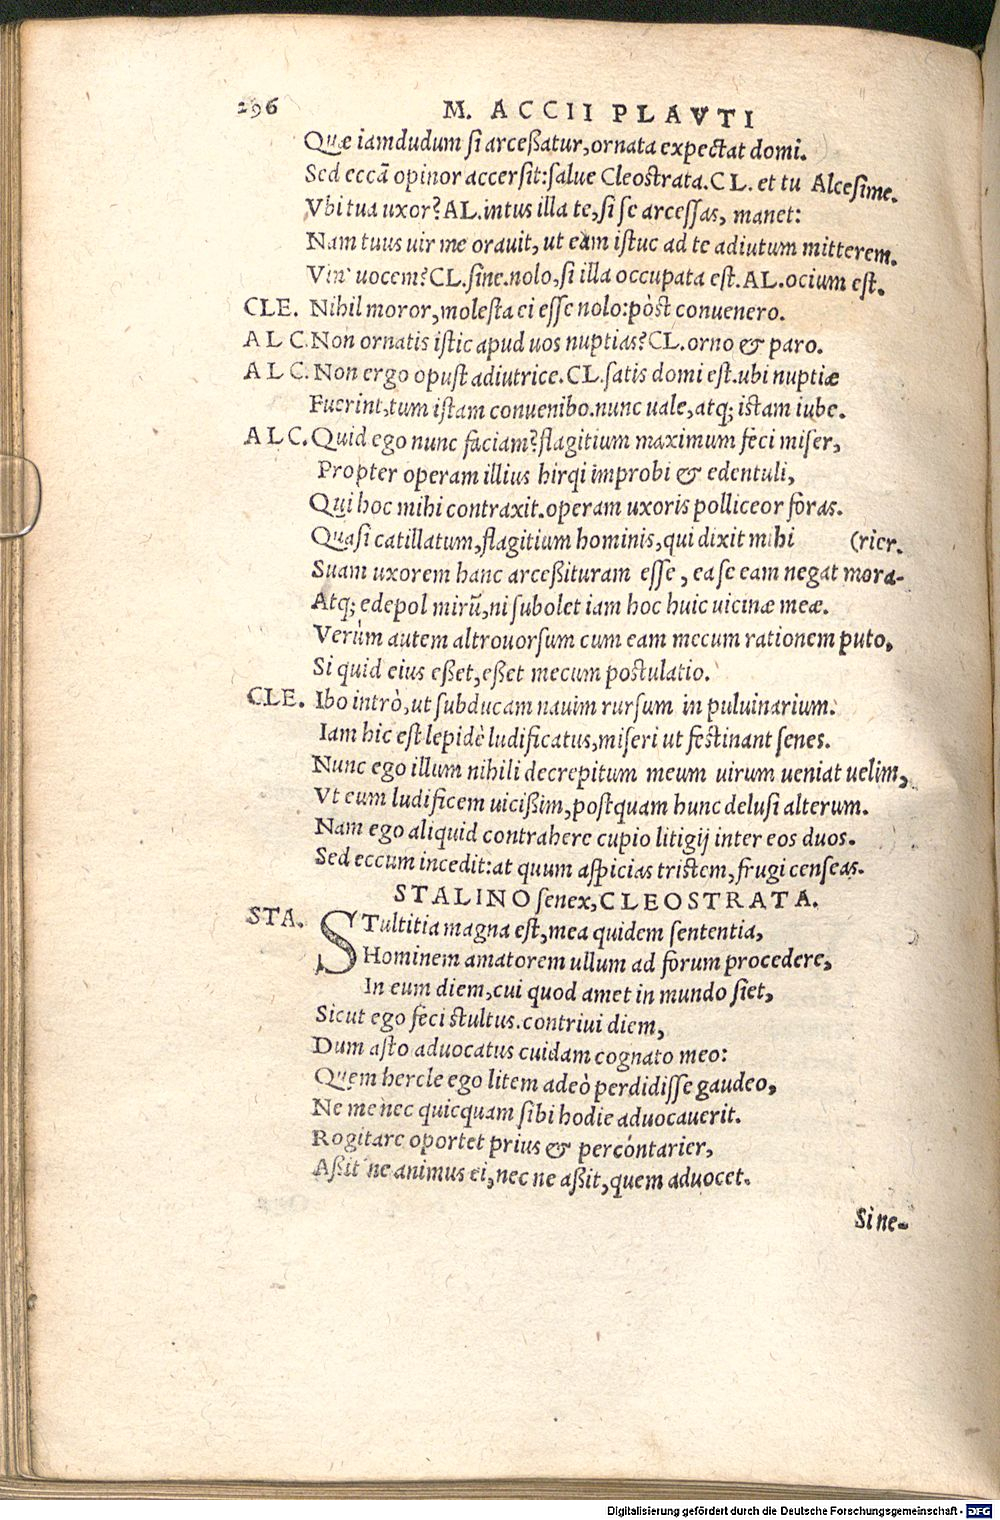 296 M. ACCII PLAVTI
Quæ iamdudum si arceßatur, ornata expectat domi.
Sed eccā opinor accersit: salue Cleostrata. CL. et tu Alcesime.
Vbi tua uxor? AL. intus illa te, si se arcessas, manet:
Nam tuus uir me orauit, ut eam istuc ad te adiutum mitterem.
Vin' uocem? CL. sine. nolo, si illa occupata est. AL. ocium est.
CLE. Nihil moror, molesta ei esse nolo: pòst conuenero.
ALC. Non ornatis istic apud uos nuptias? CL. orno & paro.
ALC. Non ergo opust adiutrice. CL. satis domi est. ubi nuptiæ
Fuerint, tum istam conuenibo. nunc uale, atq; istam iube.
ALC. Quid ego nunc faciam? flagitium maximum feci miser,
Propter operam illius hirqi improbi & edentuli,
Qui hoc mihi contraxit. operam uxoris polliceor foras.
Quasi catillatum, flagitium hominis, qui dixit mihi (rier.
Suam uxorem hanc arceßituram esse, ea se eam negat mora-
Atq; edepol mirū, ni subolet iam hoc huic uicinæ meæ.
Verùm autem altrouorsum cum eam mecum rationem puto,
Si quid eius eßet, eßet mecum postulatio.
CLE. Ibo intrò, ut subducam nauim rursum in puluinarium.
Iam hic est lepidè ludificatus, miseri ut festinant senes.
Nunc ego illum nihili decrepitum meum uirum ueniat uelim,
Vt eum ludificem uicißim, postquam hunc delusi alterum.
Nam ego aliquid contrahere cupio litigij inter eos duos.
Sed eccum incedit: at quum aspicias tristem, frugi censeas.
STALINO senex, CLEOSTRATA.
STA. STultitia magna est, mea quidem sententia,
Hominem amatorem ullum ad forum procedere,
In eum diem, cui quod amet in mundo siet,
Sicut ego feci stultus. contriui diem,
Dum asto aduocatus cuidam cognato meo:
Quem hercle ego litem adeò perdidisse gaudeo,
Ne me nec quicquam sibi hodie aduocauerit.
Rogitare oportet prius & percóntarier,
Aßit' ne animus ei, nec ne aßit, quem aduocet.
Si ne-
Digitalisierung gefördert durch die Deutsche Forschungsgemeinschaft - DFG